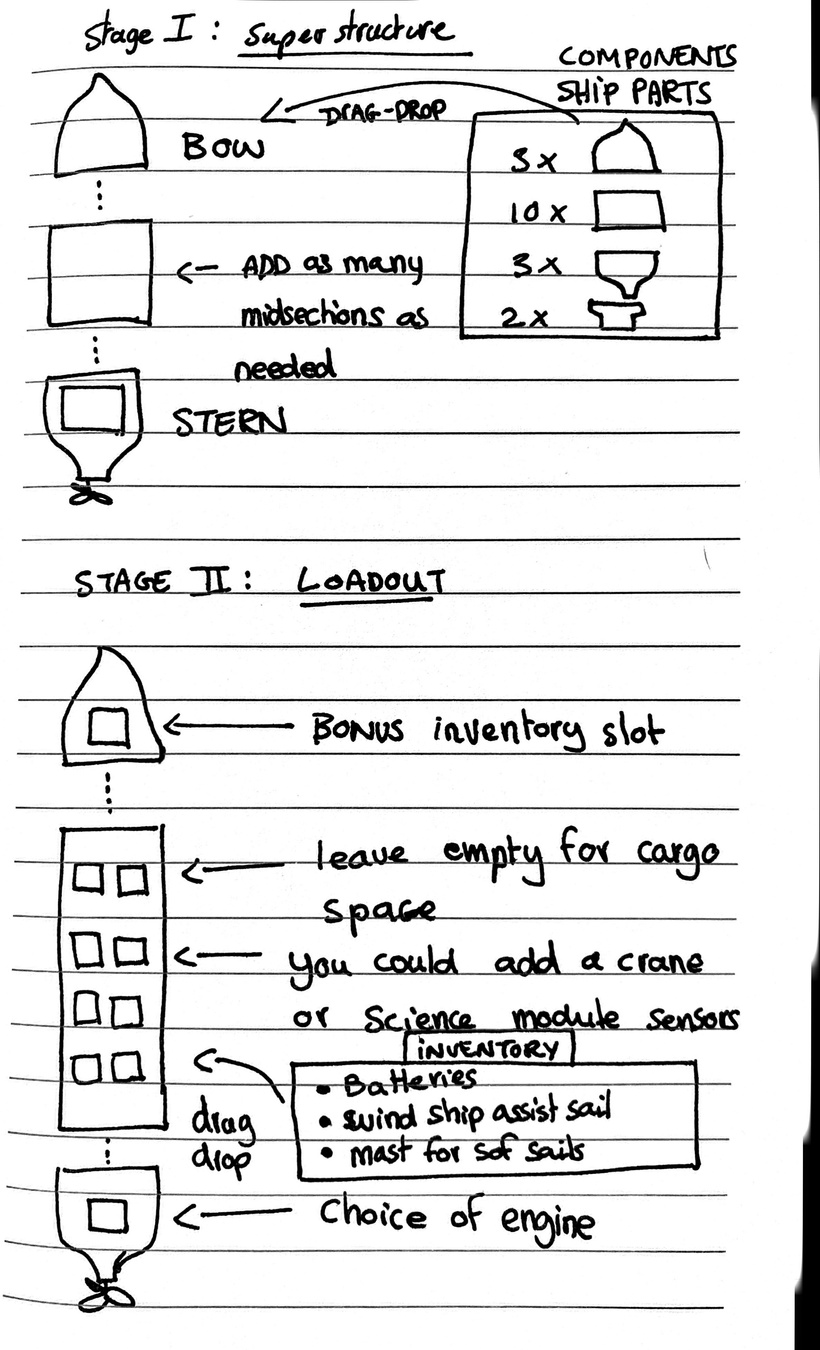 Stage I : Superstructure
COMPONENTS
SHIP PARTS
DRAG-DROP
BOW
3x
10x
3x
2x
<- ADD as many
midsections as
needed
STERN
STAGE II : LOADOUT
BONUS inventory slot
leave empty for cargo
space
you could add a crane
or Science module sensors
INVENTORY
• Batteries
• wind ship assist sail
• mast for sof sails
drag
drop
Choice of engine